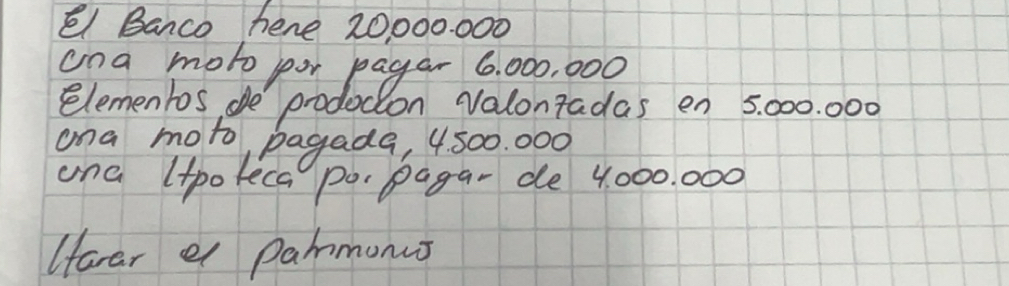 El Banco tiene 20,000.000
una moto por pagar 6.000.000
Elementos de prodoccion Valorizadas en 5.000.000
una moto pagada, 4.500.000
una Hipoteca por pagar de 4.000.000
Hayar el patrimonio